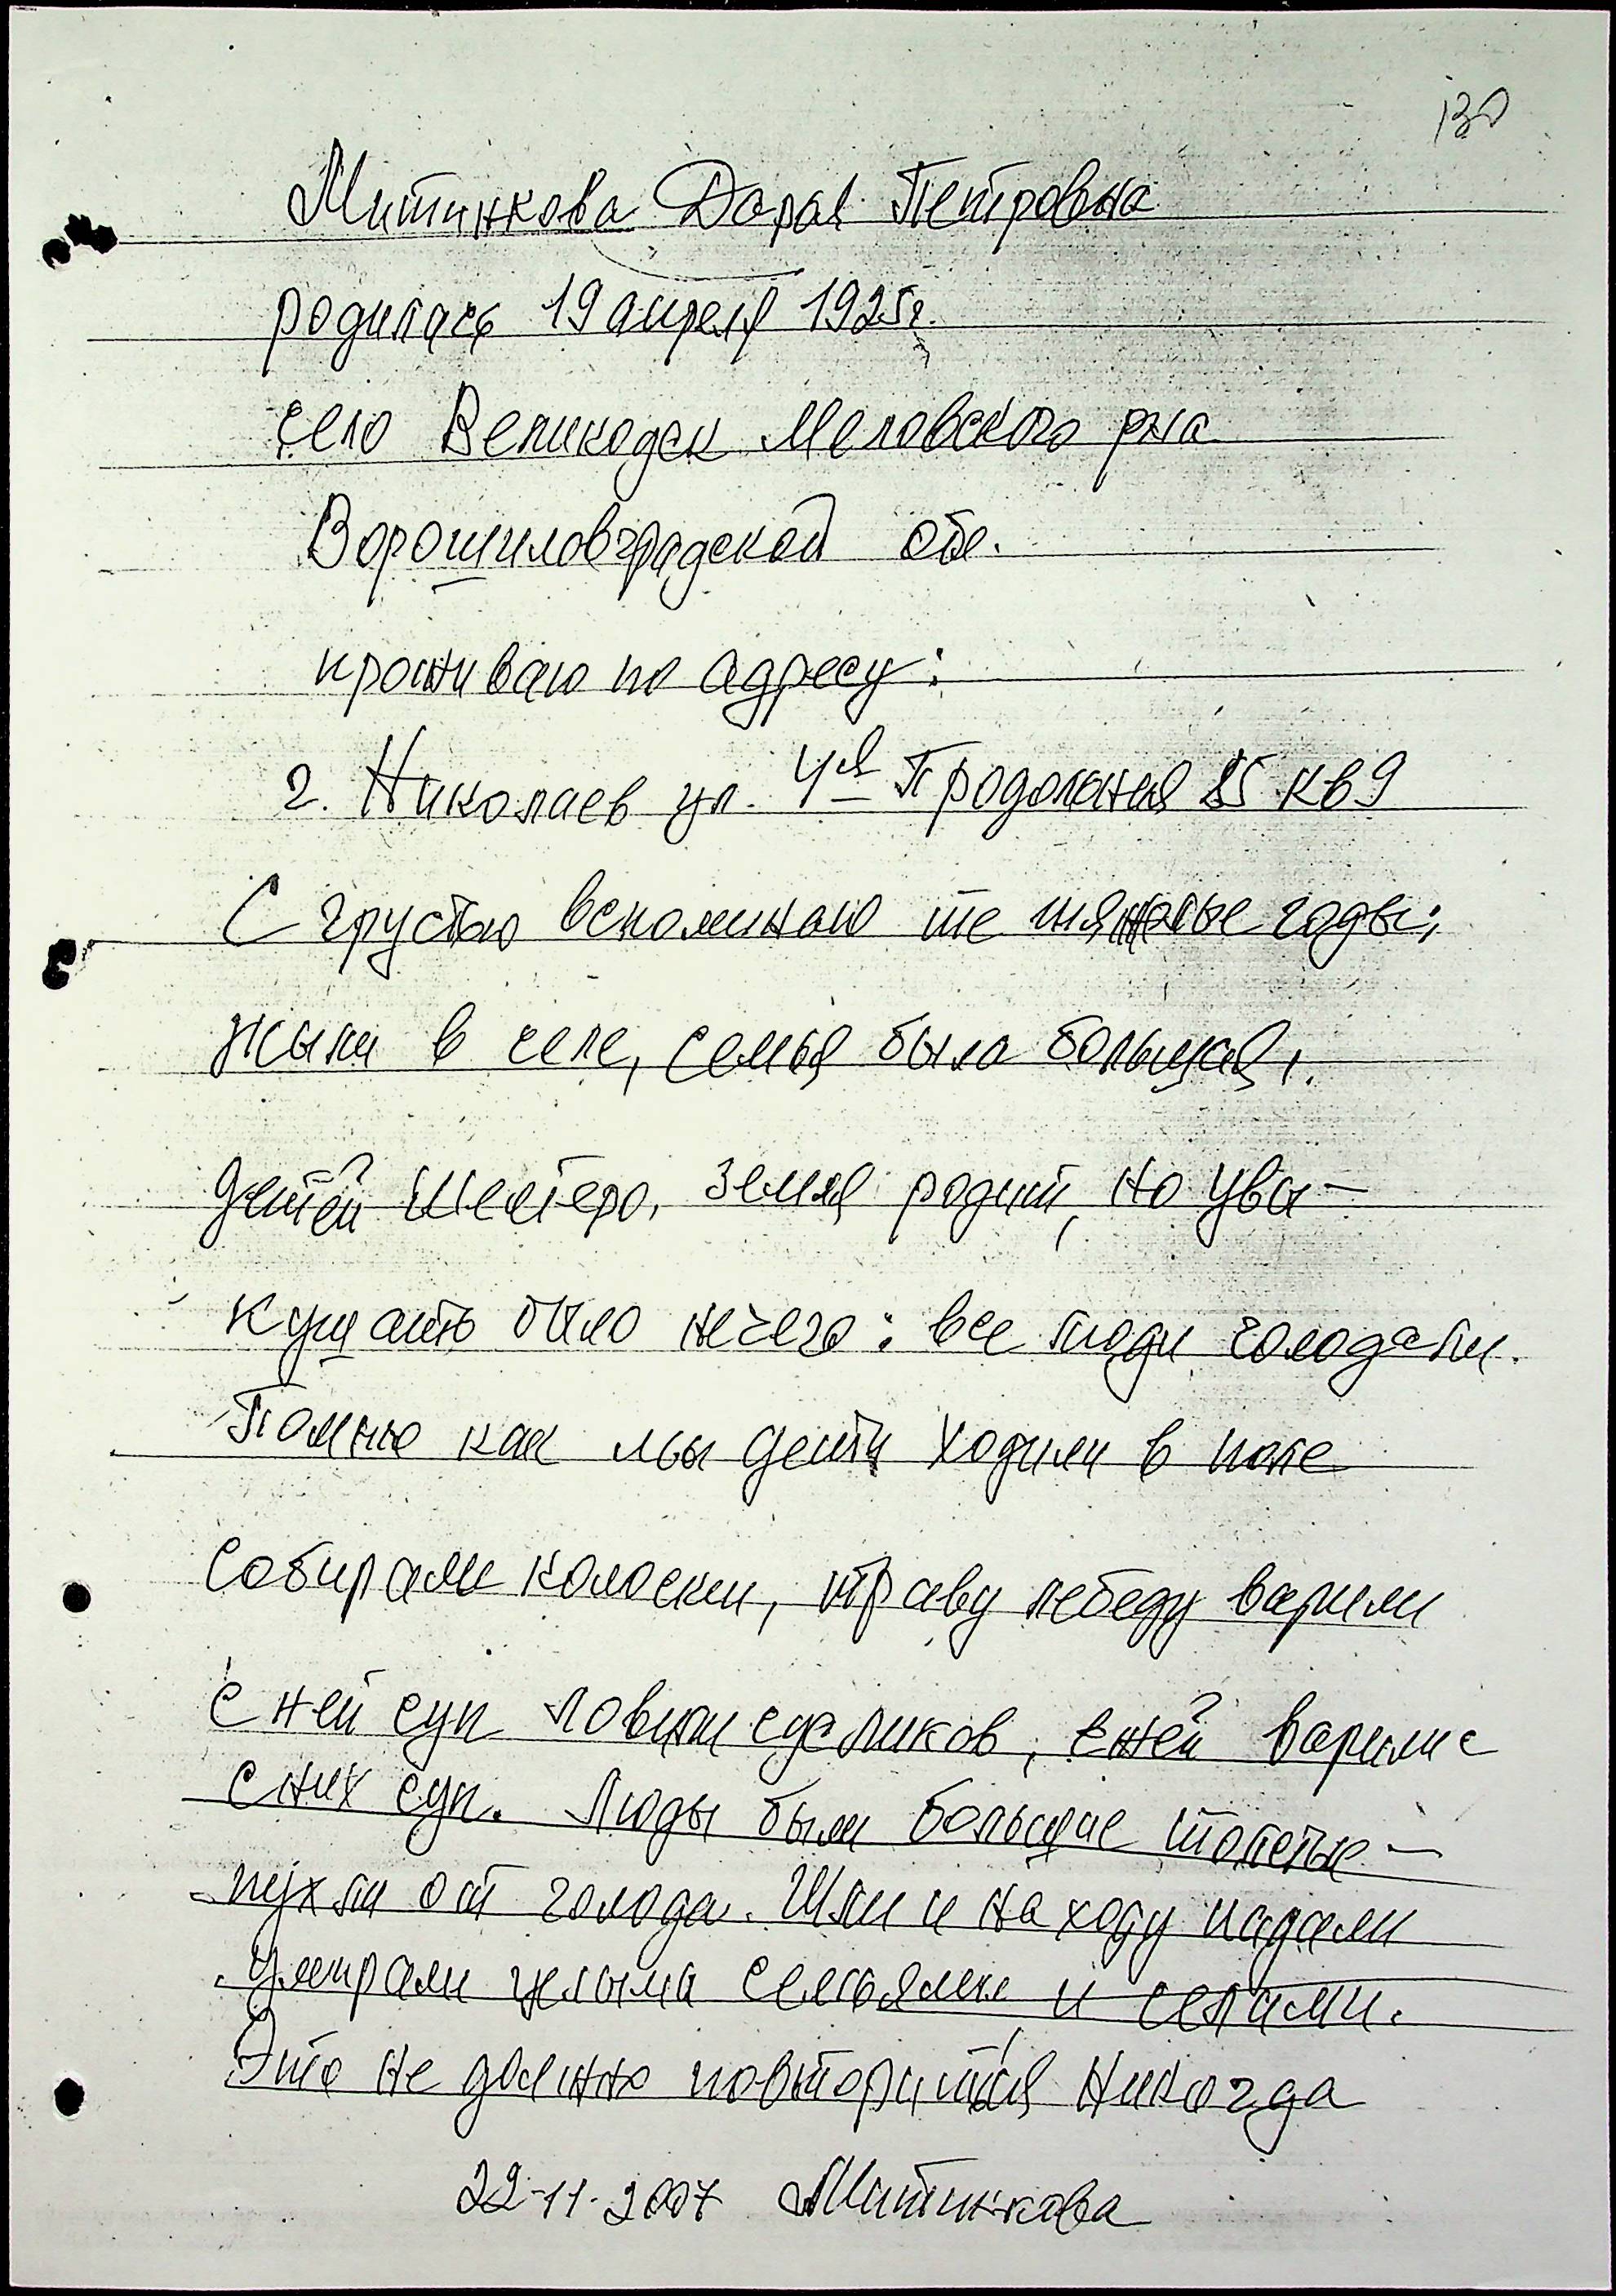 130
Митинкова Дария Петровна
родилась 19 апреля 1925г.
село Великодск Меловского рна
Ворошиловградской обл.
проживаю по адресу:
г. Николаев ул. 4ая Продольная 25 кв 9
С грустью вспоминаю те тяжолые годы;
жыли в селе, семья была большая,
детей шестеро, земля родит, но увы —
кушать было нечего: все люди голодали.
Помню как мы дети ходили в поле
собирали колоски, траву лебеду варили
с ней суп ловили сусликов, варили
с них суп. Люды были большие толстые —
пухли от голода. Шли и на ходу падали
умирали целыми семьями и селами.
Это не должно повториться никогда
22-11-2007 Митинкова